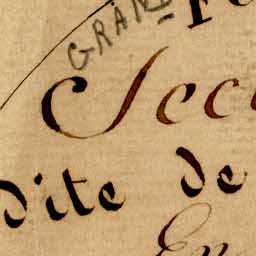 GRAN
Sec
dite de
En